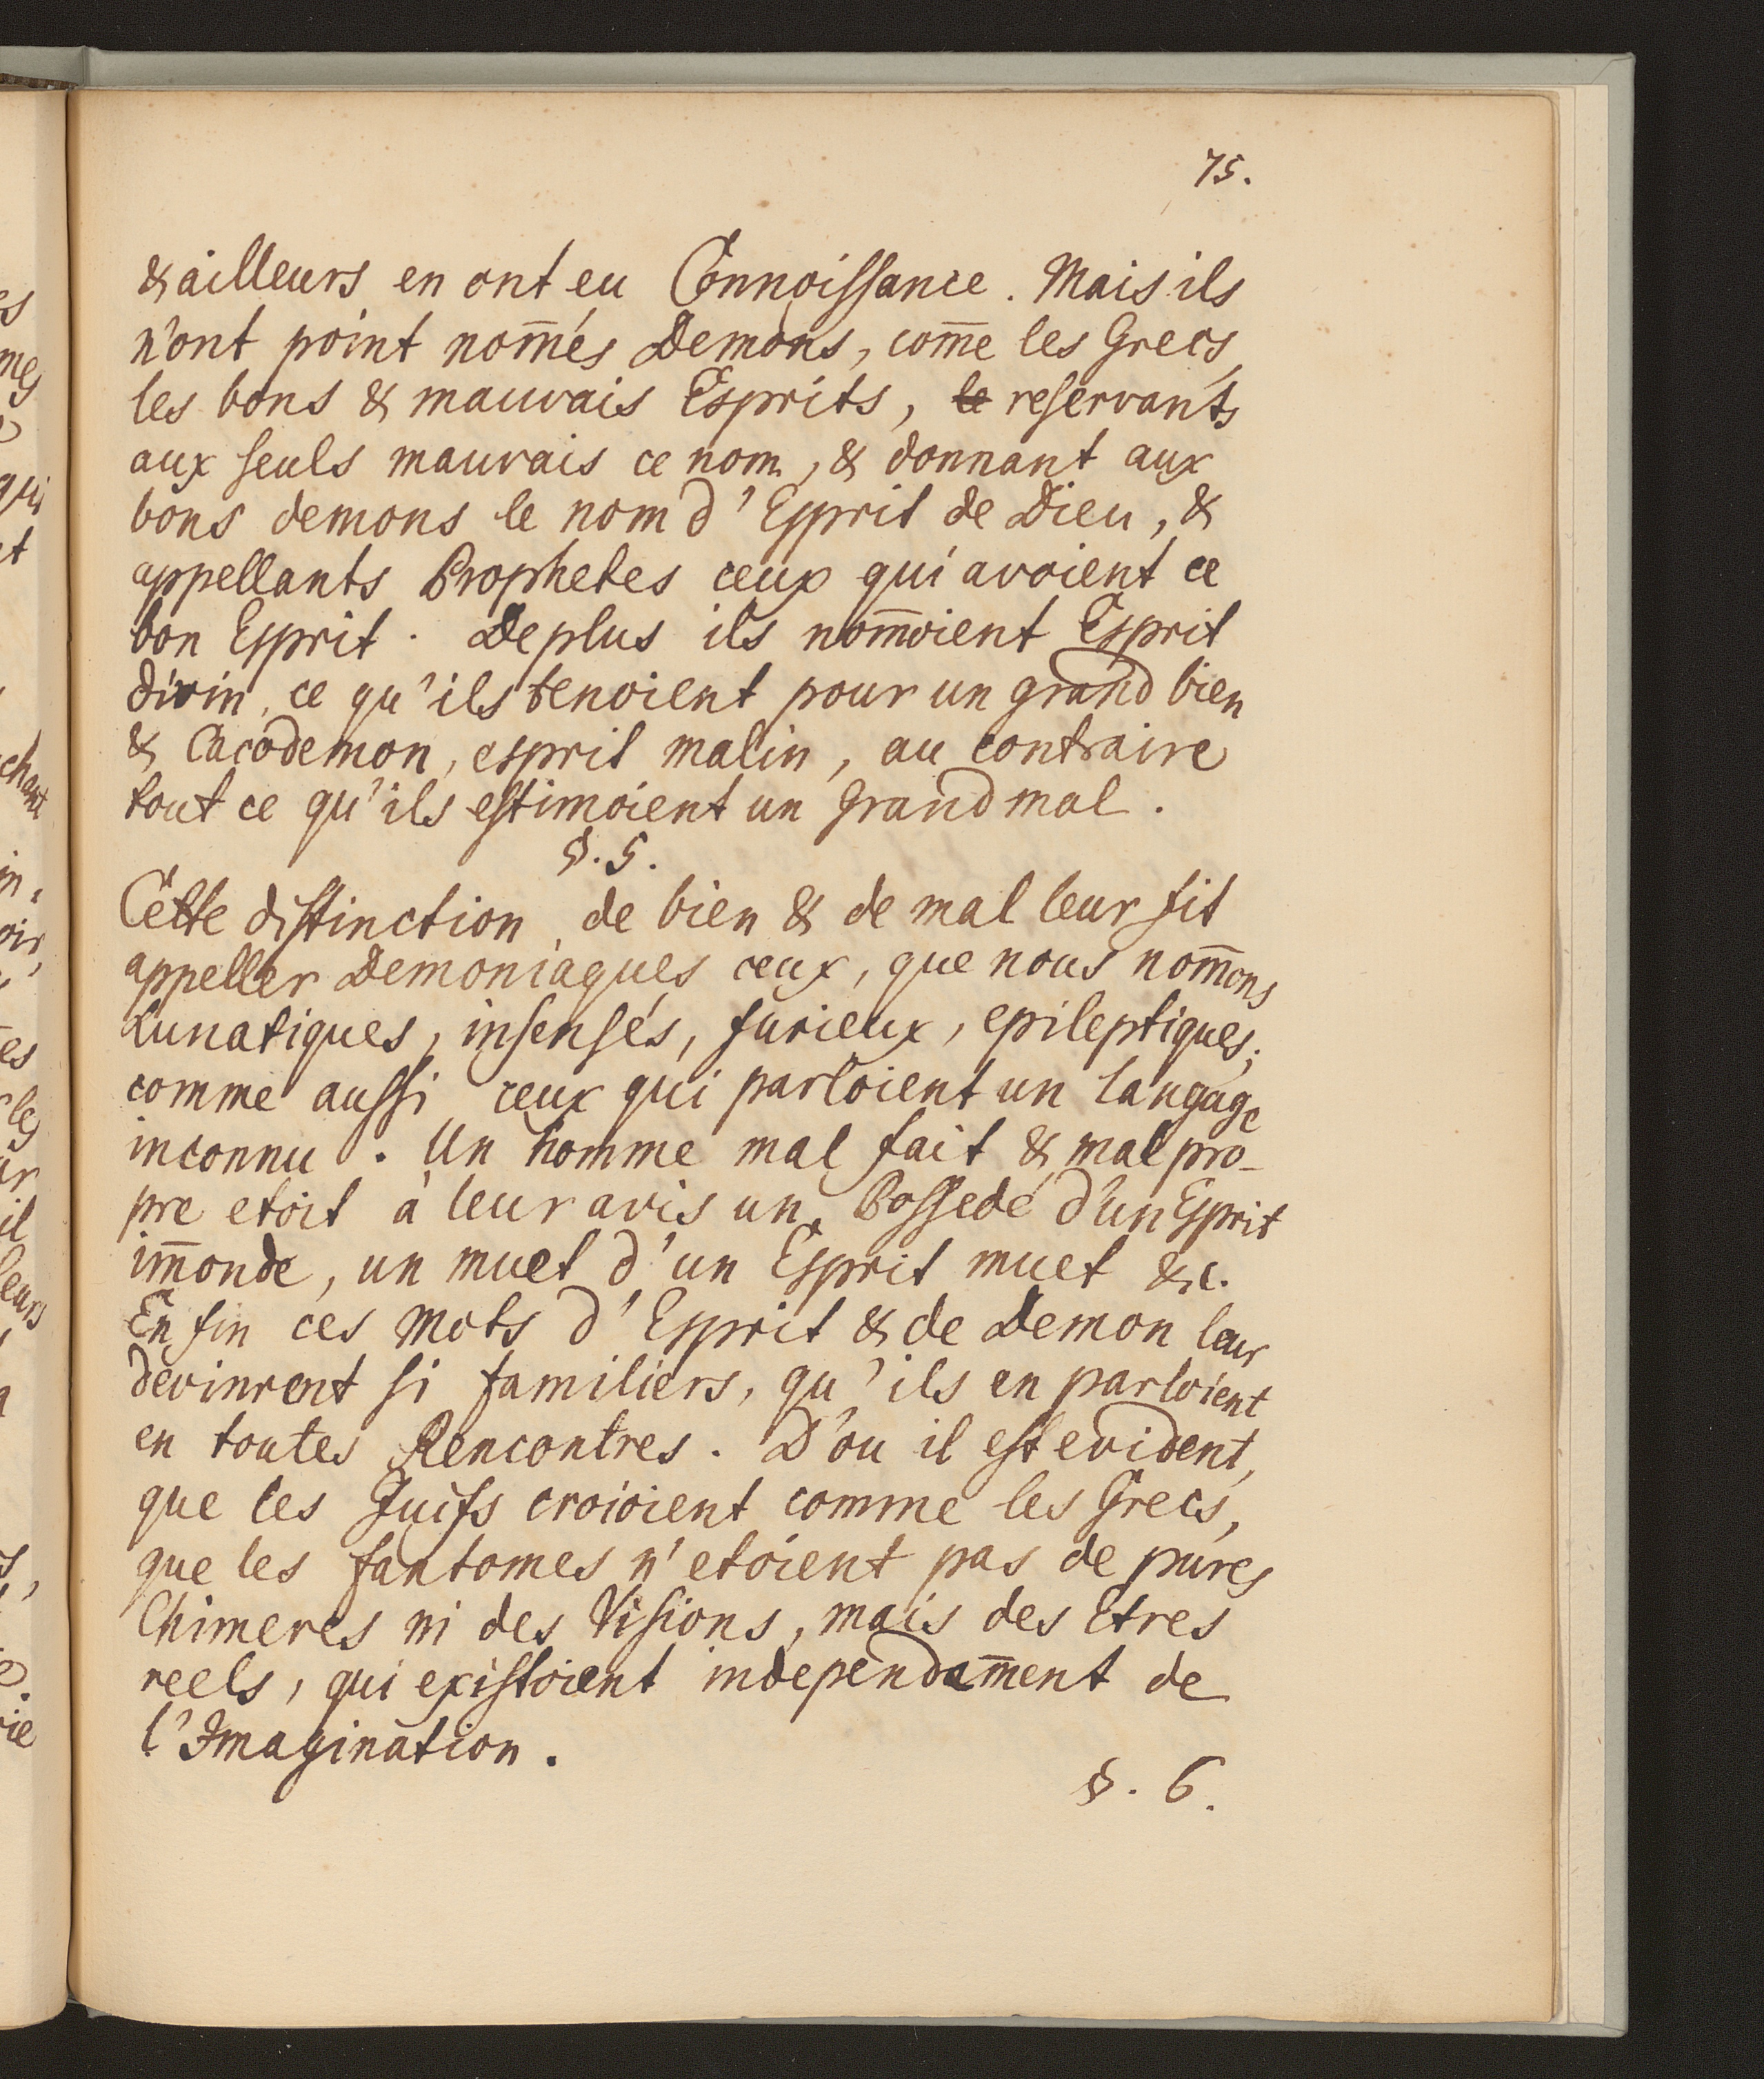 75.
& ailleurs en ont eu Connoissance. Mais ils
n'ont point nom̄és Demons, com̄e les Grecs,
les bons & mauvais Esprits, le reservants
aux seuls mauvais ce nom, & donnant aux
bons demons le nom d'Esprit de Dieu, &
appellants Prophetes ceux qui avoient ce
bon Esprit. De plus ils nom̄oient Esprit
divin, ce qu'ils tenoient pour un grand bien
& Cacodemon, esprit malin, au contraire
tout ce qu'ils estimoient un grand mal.
§. 5.
Cette distinction de bien & de mal leur fit
appeller Demoniaques ceux, que nous nom̄ons
Lunatiques, insensés, furieux, epileptiques;
comme aussi ceux qui parloient un langage
inconnu. Un homme mal fait & mal pro-
pre etoit à leur avis un Possedé d'un Esprit
im̄onde, un muet d'un Esprit muet &c.
En fin ces Mots d'Esprit & de Demon leur
devinrent si familiers, qu'ils en parloient
en toutes Rencontres. D'ou il est evident,
que les Juifs croioient comme les Grecs,
que les fantomes n'etoient pas de pures
Chimeres ni des Visions, mais des Etres
reels, qui existoient independam̄ent de
l'Imagination.
§. 6.